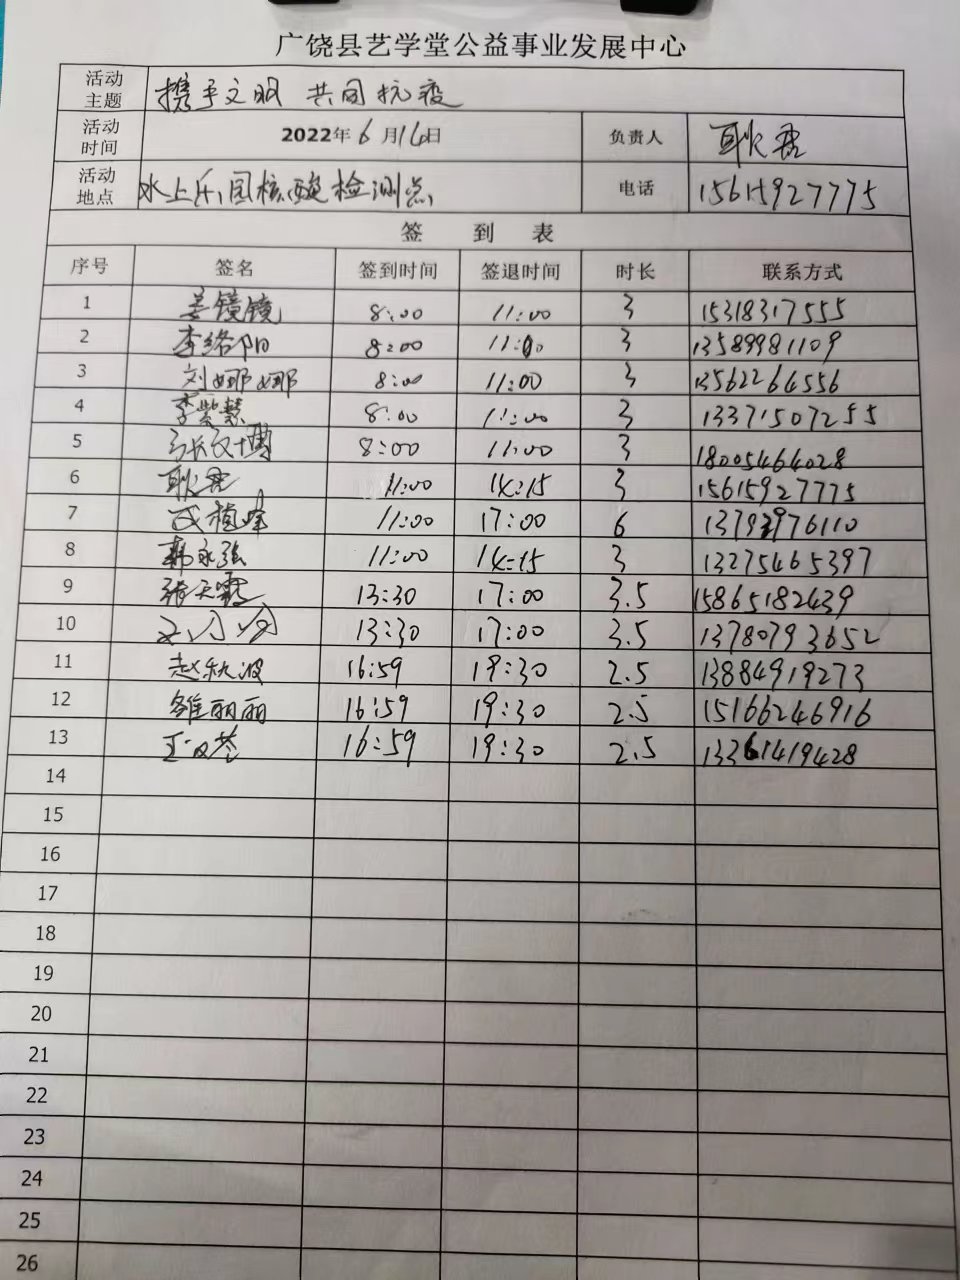 广饶县艺学堂公益事业发展中心
活动主题 携手文明 共同抗疫
活动时间 2022年6月16日 负责人 耿君
活动地点 水上乐园核酸检测点 电话 15615927775
签到表
序号 签名 签到时间 签退时间 时长 联系方式
1 姜镜镜 8:00 11:00 3 15318317555
2 李洛阳 8:00 11:00 3 13589981109
3 刘娜娜 8:00 11:00 3 13562264556
4 李紫慧 8:00 11:00 3 13371507255
5 张文博 8:00 11:00 3 18005464028
6 耿君 11:00 14:15 3 15615927775
7 成植峰 11:00 17:00 6 13793976110
8 韩永强 11:00 14:15 3 13275465397
9 张天 13:30 17:00 3.5 15865182439
10 13:30 17:00 3.5 13780793652
11 赵秋波 16:59 19:30 2.5 13884919273
12 雒丽丽 16:59 19:30 2.5 15166246916
13 王 16:59 19:30 2.5 13361419428
14
15
16
17
18
19
20
21
22
23
24
25
26